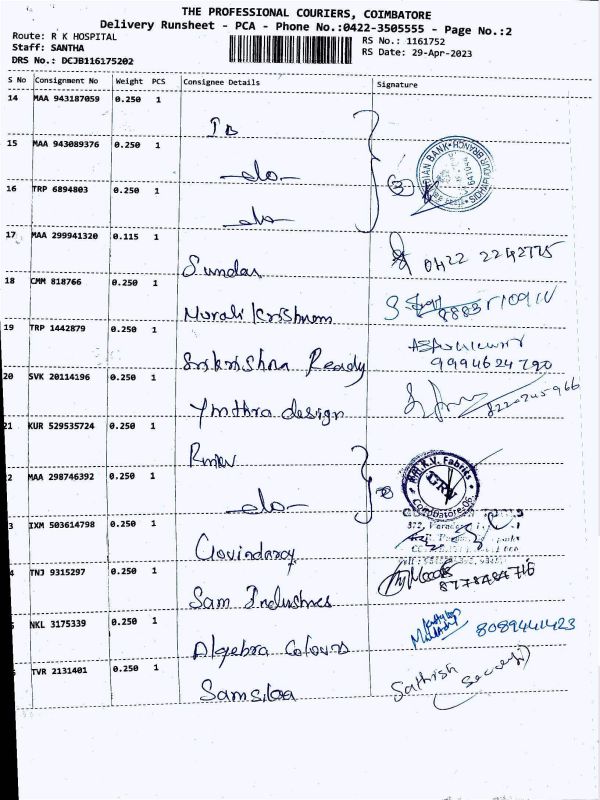 THE PROFESSIONAL COURIERS, COIMBATORE
Delivery Runsheet - PCA - Phone No.:0422-3505555 - Page No.:2
Route: R K HOSPITAL
RS No.: 1161752
Staff: SANTHA
RS Date: 29-Apr-2023
DRS No.: DCJB116175202
S No Consignment No Weight PCS Consignee Details Signature
14 MAA 943187059 0.250 1
IB
15 MAA 943089376 0.250 1
-do-
INDIAN BANK
SIDHAPUDUR BRANCH
16 TRP 6894803 0.250 1
-do-
3
17 MAA 299941320 0.115 1
Sundar
0422 2242775
18 CMM 818766 0.250 1
Murali Krishnan
19 TRP 1442879 0.250 1
Srikrishna Ready
9994624790
20 SVK 20114196 0.250 1
Ynthra design
8220245966
21 KUR 529535724 0.250 1
Rmkv
2 MAA 298746392 0.250 1
-do-
R.M.K.V. Fabrics
Coimbatore-06.
3 IXM 503614798 0.250 1
Govindaraj
4 TNJ 9315297 0.250 1
Sam Industries
8778484716
NKL 3175339 0.250 1
Algebra Colours
8089441423
TVR 2131401 0.250 1
Samsilaa
Sathish
Security